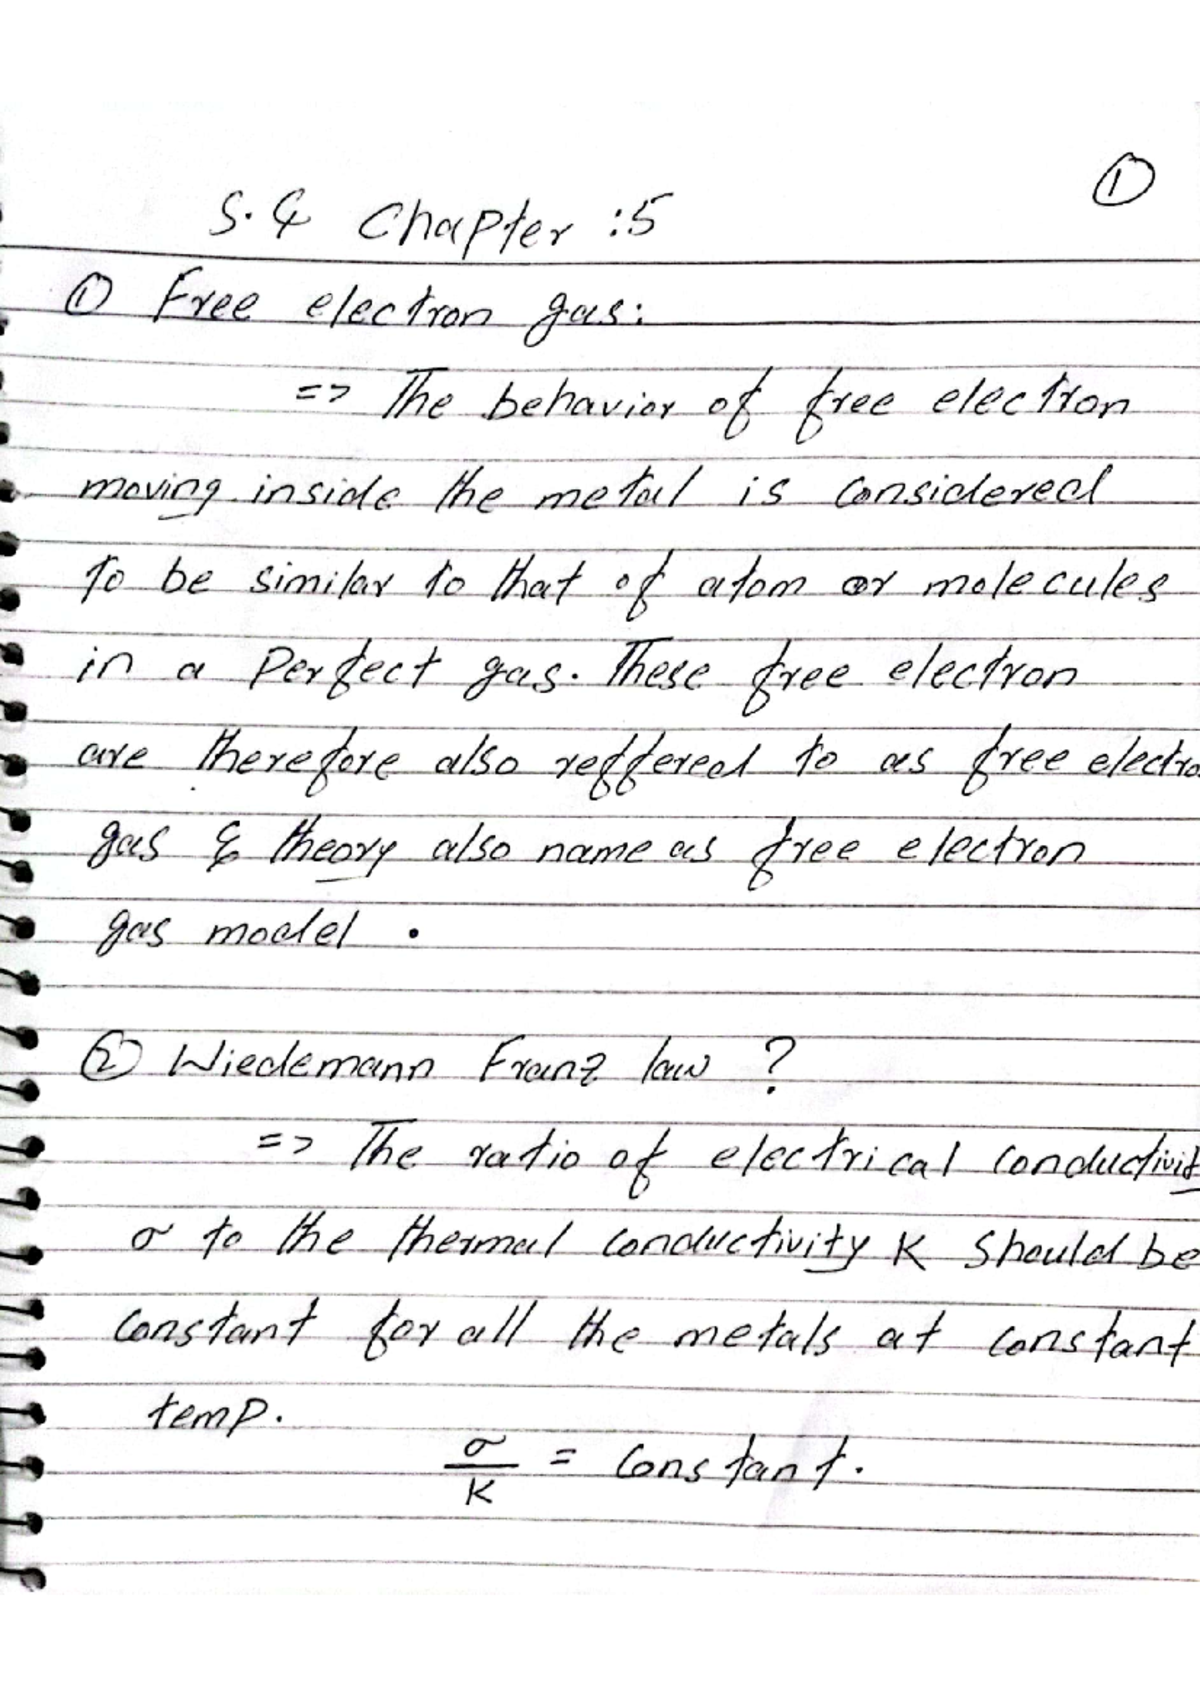 ①
S.Q Chapter :5
① Free electron gas:
=> The behavior of free electron
moving inside the metal is considered
to be similar to that of atom or molecules
in a perfect gas. These free electron
are therefore also reffered to as free electro
gas & theory also name as free electron
gas model .
② Wiedemann Franz law ?
=> The ratio of electrical conductivit
σ to the thermal conductivity K should be
constant for all the metals at constant
temp.
σ/K = constant.